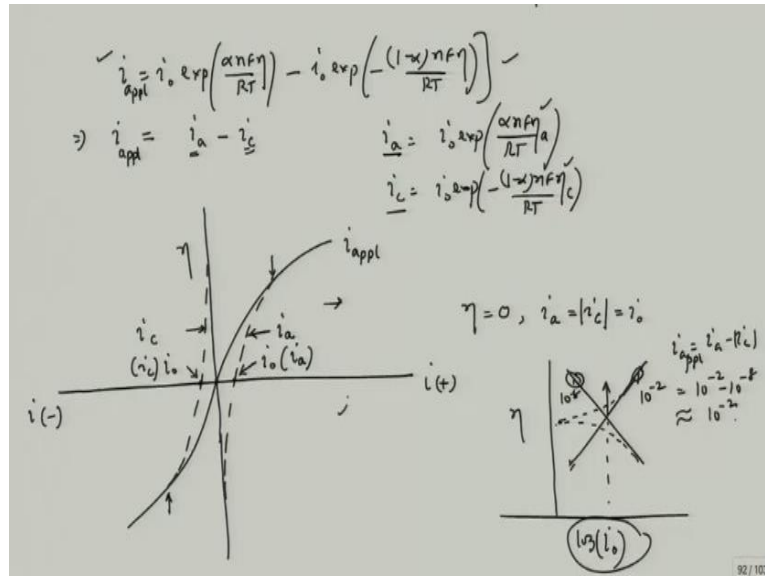 ✓ i_appl = i₀ exp(αnFη/RT) − i₀ exp(−(1-α)nFη/RT)] ✓
⇒) i_appl = i_a − i_c
i_a = i₀ exp(αnFη_a/RT)
i_c = i₀ exp(−(1-α)nFη_c/RT)
η
i_appl
i_c
i_a
(i_c) i₀
i₀ (i_a)
i(-)
i(+)
η = 0, i_a = |i_c| = i₀
i_appl = i_a − |i_c|
= 10⁻² − 10⁻⁸
≈ 10⁻²
10⁻⁸
10⁻²
η
log(i₀)
92/103